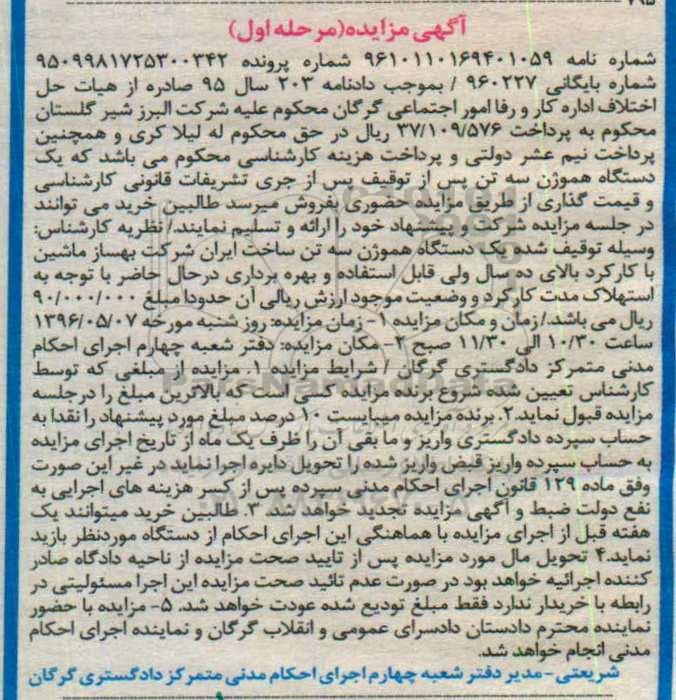 ۷۹۵
آگهی مزایده(مرحله اول)
شماره نامه ۹۶۱۰۱۱۰۱۶۹۴۰۱۰۵۹ شماره پرونده ۹۵۰۹۹۸۱۷۲۵۳۰۰۳۴۲
شماره بایگانی ۹۶۰۲۲۷ / بموجب دادنامه ۲۰۳ سال ۹۵ صادره از هیات حل
اختلاف اداره کار و رفا امور اجتماعی گرگان محکوم علیه شرکت البرز شیر گلستان
محکوم به پرداخت ۳۷/۱۰۹/۵۷۶ ریال در حق محکوم له لیلا کری و همچنین
پرداخت نیم عشر دولتی و پرداخت هزینه کارشناسی محکوم می باشد که یک
دستگاه هموژن سه تن پس از توقیف پس از جری تشریفات قانونی کارشناسی
و قیمت گذاری از طریق مزایده حضوری بفروش میرسد طالبین خرید می توانند
در جلسه مزایده شرکت و پیشنهاد خود را ارائه و تسلیم نمایند./ نظریه کارشناس:
وسیله توقیف شده یک دستگاه هموژن سه تن ساخت ایران شرکت بهساز ماشین
با کارکرد بالای ده سال ولی قابل استفاده و بهره برداری درحال حاضر با توجه به
استهلاک مدت کارکرد و وضعیت موجود ارزش ریالی آن حدودا مبلغ ۹۰/۰۰۰/۰۰۰
ریال می باشد./ زمان و مکان مزایده ۱- زمان مزایده: روز شنبه مورخه ۱۳۹۶/۰۵/۰۷
ساعت ۱۰/۳۰ الی ۱۱/۳۰ صبح ۲- مکان مزایده: دفتر شعبه چهارم اجرای احکام
مدنی متمرکز دادگستری گرگان / شرایط مزایده ۱. مزایده از مبلغی که توسط
کارشناس تعیین شده شروع برنده مزایده کسی است که بالاترین مبلغ را درجلسه
مزایده قبول نماید.۲. برنده مزایده میبایست ۱۰ درصد مبلغ مورد پیشنهاد را نقدا به
حساب سپرده دادگستری واریز و ما بقی آن را ظرف یک ماه از تاریخ اجرای مزایده
به حساب سپرده واریز قبض واریز شده را تحویل دایره اجرا نماید در غیر این صورت
وفق ماده ۱۲۹ قانون اجرای احکام مدنی سپرده پس از کسر هزینه های اجرایی به
نفع دولت ضبط و آگهی مزایده تجدید خواهد شد. ۳. طالبین خرید میتوانند یک
هفته قبل از اجرای مزایده با هماهنگی این اجرای احکام از دستگاه موردنظر بازید
نماید.۴ تحویل مال مورد مزایده پس از تایید صحت مزایده از ناحیه دادگاه صادر
کننده اجرائیه خواهد بود در صورت عدم تائید صحت مزایده این اجرا مسئولیتی در
رابطه با خریدار ندارد فقط مبلغ تودیع شده عودت خواهد شد. ۵- مزایده با حضور
نماینده محترم دادستان دادسرای عمومی و انقلاب گرگان و نماینده اجرای احکام
مدنی انجام خواهد شد.
شریعتی - مدیر دفتر شعبه چهارم اجرای احکام مدنی متمرکز دادگستری گرگان
ParsNamadData